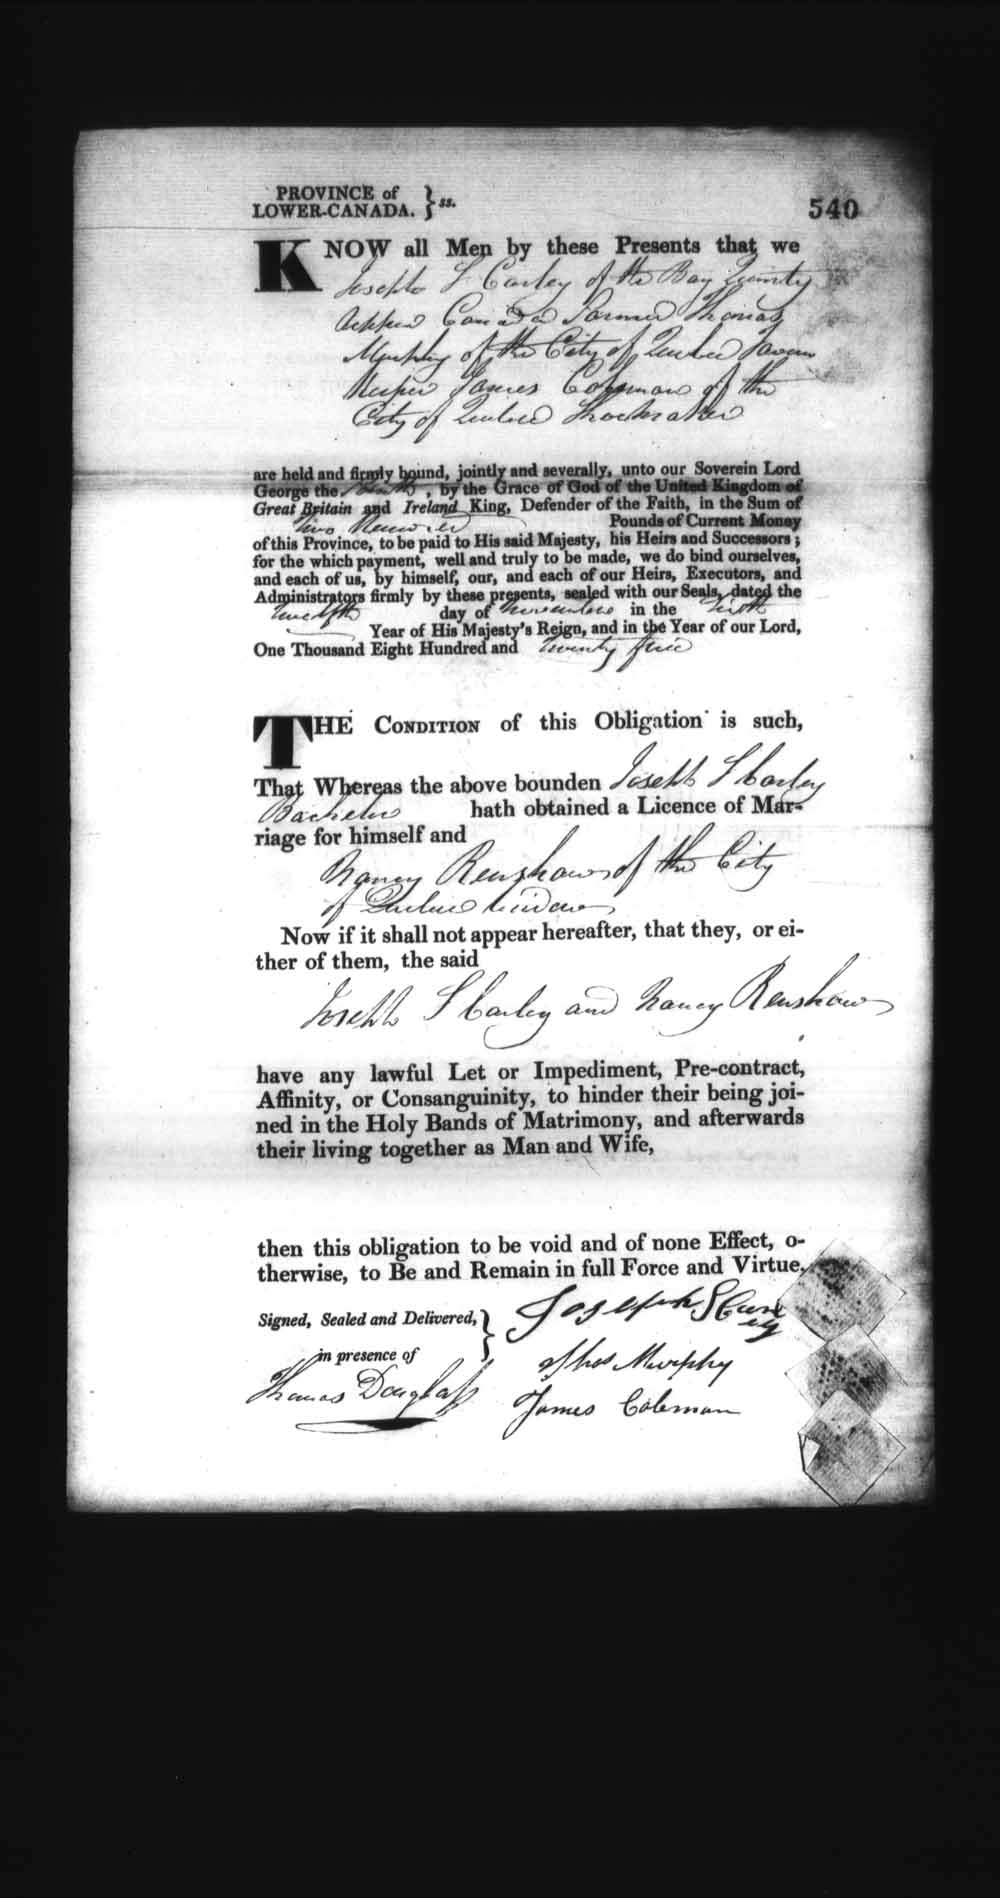 PROVINCE of
LOWER-CANADA. } ss.
540
KNOW all Men by these Presents that we
Joseph S Carley of the Bay Quinty
Upper Canada Farmer Thomas
Murphy of the City of Quebec Tavern
Keeper James Coleman of the
City of Quebec Shoemaker
are held and firmly bound, jointly and severally, unto our Soverein Lord
George the fourth, by the Grace of God of the United Kingdom of
Great Britain and Ireland King, Defender of the Faith, in the Sum of
Two Hundred Pounds of Current Money
of this Province, to be paid to His said Majesty, his Heirs and Successors;
for the which payment, well and truly to be made, we do bind ourselves,
and each of us, by himself, our, and each of our Heirs, Executors, and
Administrators firmly by these presents, sealed with our Seals, dated the
twelfth day of November in the sixth
Year of His Majesty's Reign, and in the Year of our Lord,
One Thousand Eight Hundred and twenty five
THE CONDITION of this Obligation is such,
That Whereas the above bounden Joseph S Carley
Bachelor hath obtained a Licence of Mar-
riage for himself and
Nancy Renshaw of the City
of Quebec Widow
Now if it shall not appear hereafter, that they, or ei-
ther of them, the said
Joseph S Carley and Nancy Renshaw
have any lawful Let or Impediment, Pre-contract,
Affinity, or Consanguinity, to hinder their being joi-
ned in the Holy Bands of Matrimony, and afterwards
their living together as Man and Wife,
then this obligation to be void and of none Effect, o-
therwise, to Be and Remain in full Force and Virtue.
Signed, Sealed and Delivered, } Joseph S
in presence of Thos Murphy
Thomas Douglass James Coleman